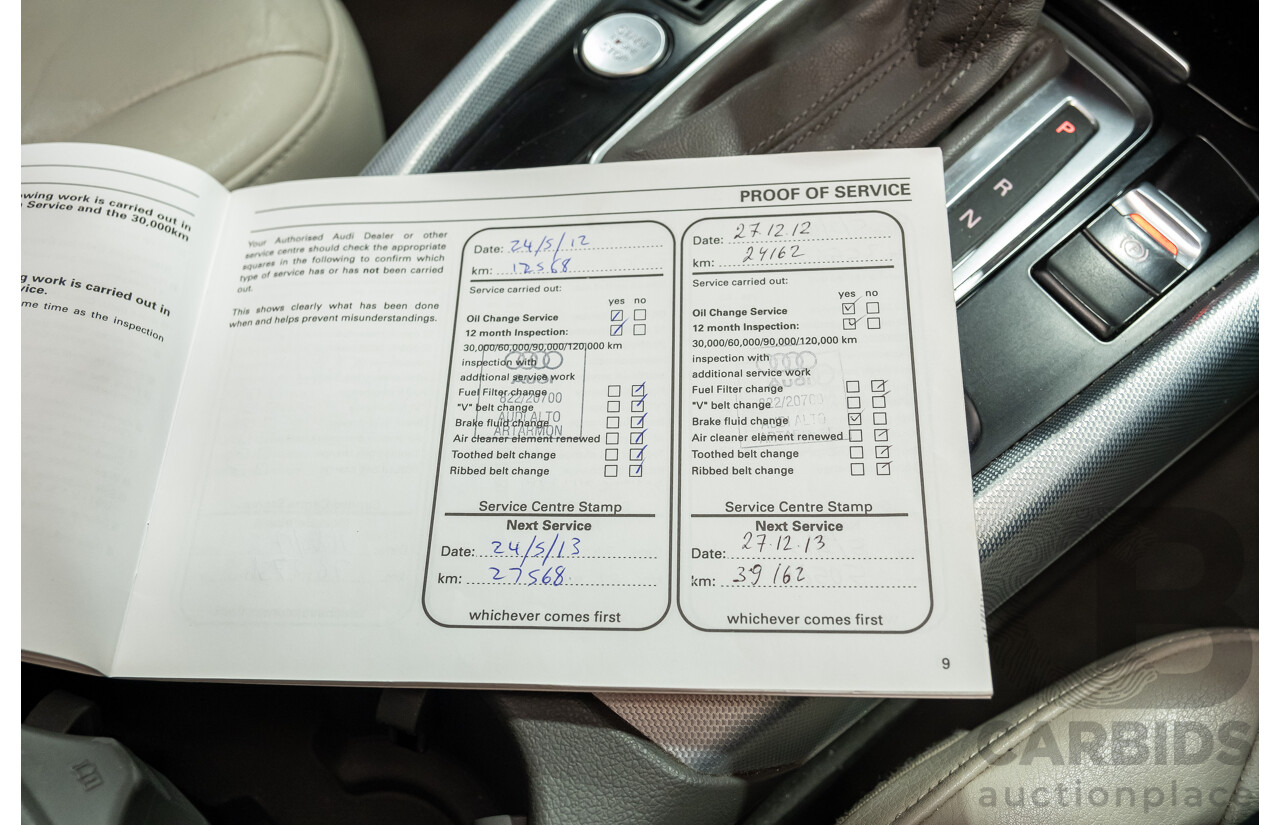 owing work is carried out in
Service and the 30,000km
g work is carried out in
vice.
me time as the inspection
PROOF OF SERVICE
Your Authorised Audi Dealer or other
service centre should check the appropriate
squares in the following to confirm which
type of service has or has not been carried
out.
This shows clearly what has been done
when and helps prevent misunderstandings.
Date: 24/5/12
km: 12568
Service carried out:
yes no
Oil Change Service
12 month Inspection:
30,000/60,000/90,000/120,000 km
inspection with
additional service work
Fuel Filter change
"V" belt change
Brake fluid change
Air cleaner element renewed
Toothed belt change
Ribbed belt change
AUDI
822/20700
AUDI ALTO
ARTARMON
Service Centre Stamp
Next Service
Date: 24/5/13
km: 27568
whichever comes first
Date: 27.12.12
km: 24162
Service carried out:
yes no
Oil Change Service
12 month Inspection:
30,000/60,000/90,000/120,000 km
inspection with
additional service work
Fuel Filter change
"V" belt change
Brake fluid change
Air cleaner element renewed
Toothed belt change
Ribbed belt change
AUDI
822/20700
Service Centre Stamp
Next Service
Date: 27.12.13
km: 39162
whichever comes first
9
P
R
N
CARBIDS
auctionplace